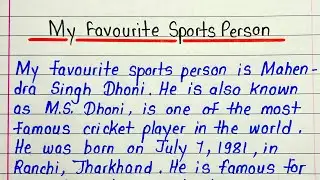 My Favourite Sports Person
My favourite sports person is Mahen-
dra Singh Dhoni. He is also known
as M.S. Dhoni, is one of the most
famous cricket player in the world.
He was born on July 7, 1981, in
Ranchi, Jharkhand. He is famous for